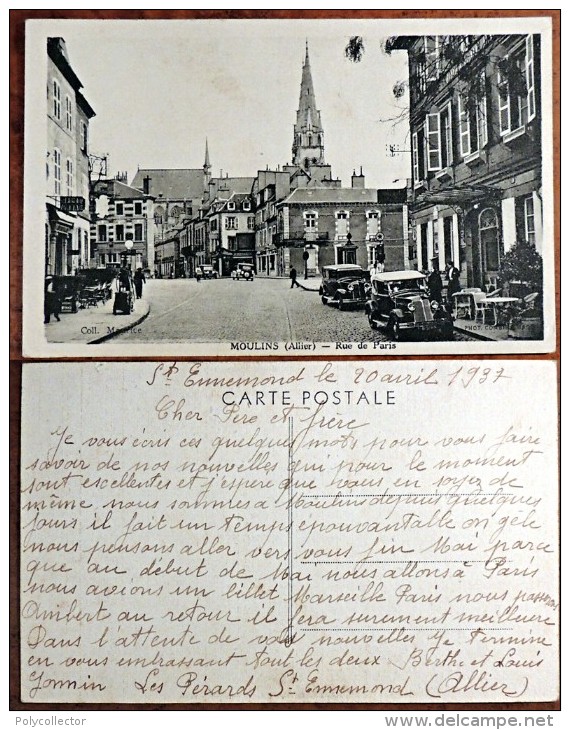 Coll. Maurice
PHOT. COMBIER
MOULINS (Allier) — Rue de Paris
St Ennemond le 20 avril 1937
CARTE POSTALE
Cher Père et frère
Je vous écris ces quelques mots pour vous faire
savoir de nos nouvelles qui pour le moment
sont escellentes et j'espère que vous en soyez de
même nous sommes a Moulins depuis quelques
jours il fait un temps epouvantalle on gèle
nous pensons aller vers vous fin Mai parce
que au début de Mai nous allons à Paris
nous avions un billet Marseille Paris nous passons
Ambert au retour il fera surement meilleure
Dans l'attente de vos nouvelles Je termine
en vous embrassant tout les deux Berthe et Louis
Les Pérards St Ennemond (Allier)
Polycollector
www.delcampe.net